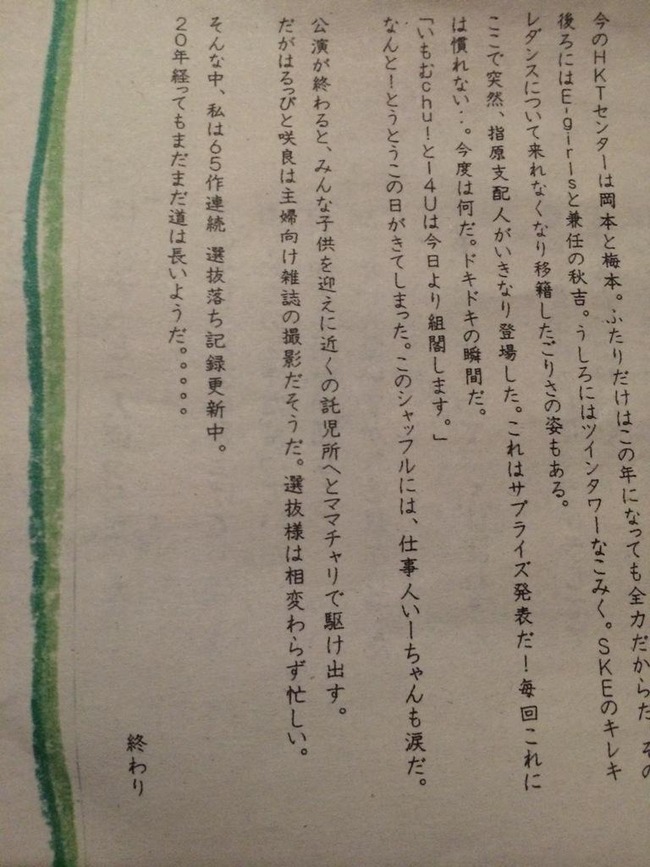 今のHKTセンターは岡本と梅本。ふたりだけはこの年になっても全力だからだ その
後ろにはE-girlsと兼任の秋吉。うしろにはツインタワーなこみく。SKEのキレキ
レダンスについて来れなくなり移籍したごりさの姿もある。
ここで突然、指原支配人がいきなり登場した。これはサプライズ発表だ！毎回これに
は慣れない…。今度は何だ。ドキドキの瞬間だ。
「いもむchu！と14Uは今日より組閣します。」
なんと！とうとうこの日がきてしまった。このシャッフルには、仕事人いーちゃんも涙だ。
公演が終わると、みんな子供を迎えに近くの託児所へとママチャリで駆け出す。
だがはるっぴと咲良は主婦向け雑誌の撮影だそうだ。選抜様は相変わらず忙しい。
そんな中、私は65作連続 選抜落ち記録更新中。
20年経ってもまだまだ道は長いようだ。。。。。
終わり